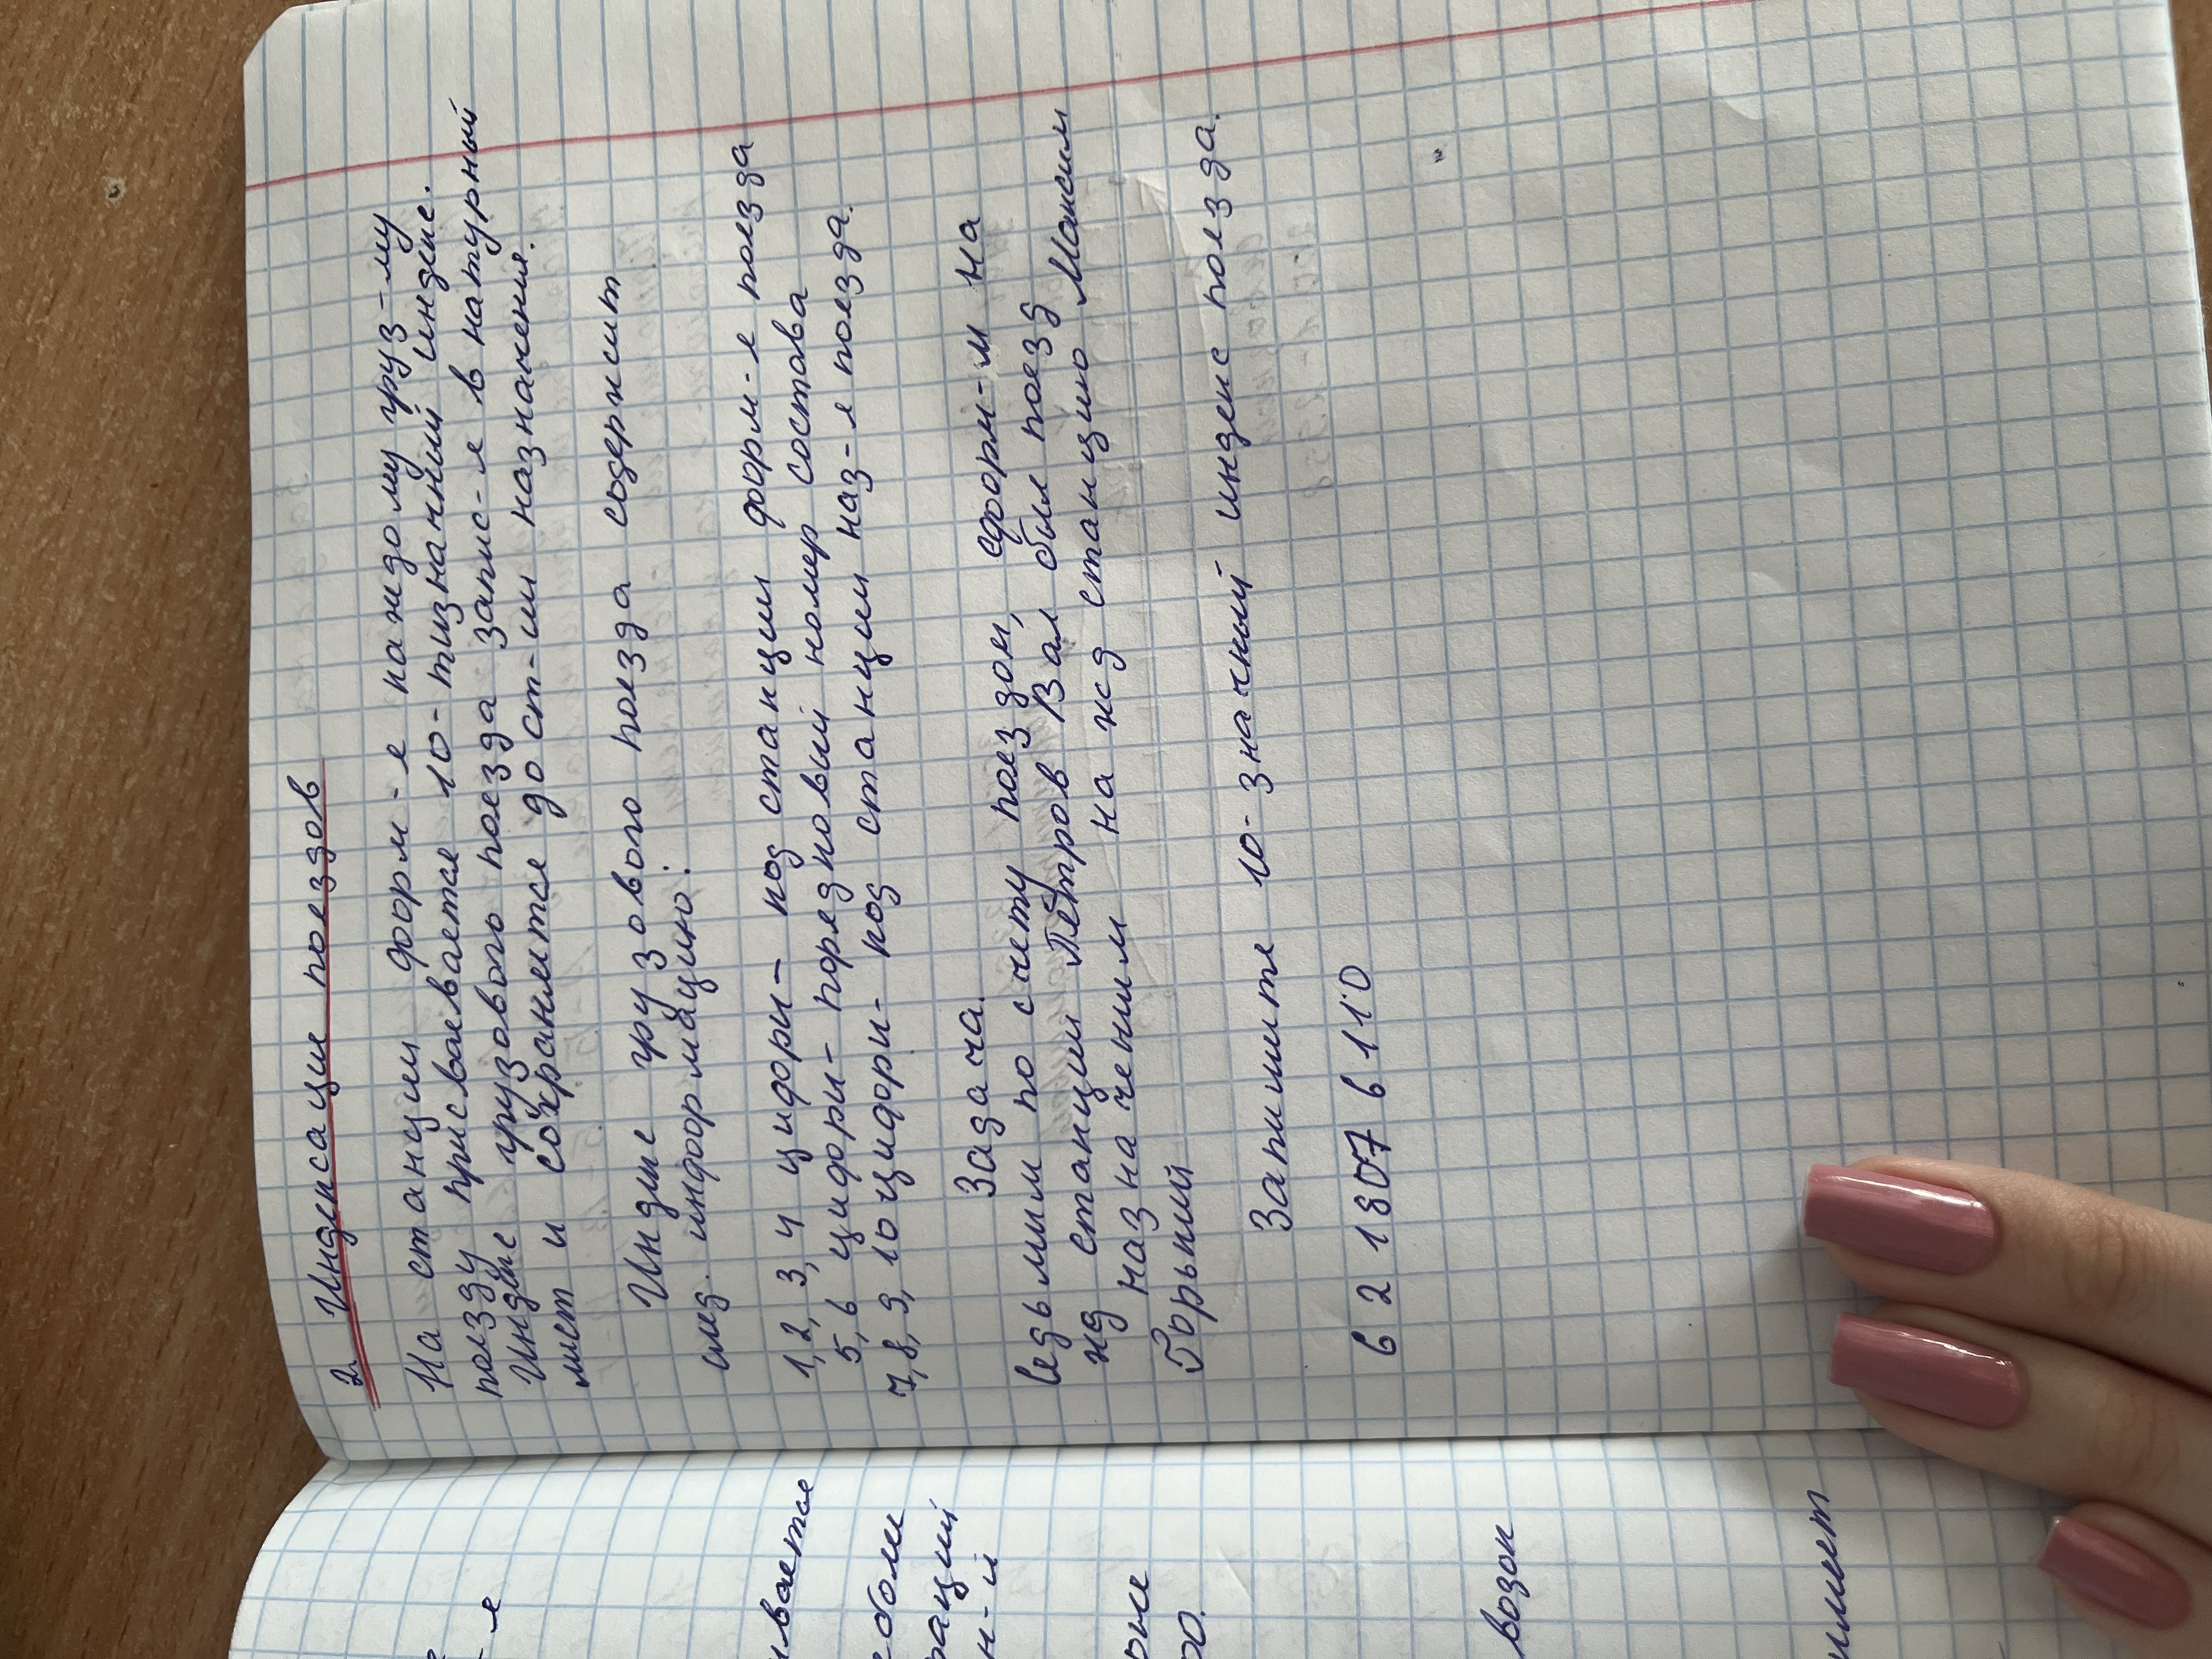 2. Индексация поездов
На станции форм-я каждому груз-му
поезду присваивается 10-тизначный индекс.
Индекс грузового поезда запис-я в натурный
лист и сохраняется до ст-ии назначения.
Индекс грузового поезда содержит
след. информацию:
1, 2, 3, 4 цифры - код станции форм-я поезда
5, 6 цифры - порядковый номер состава
7, 8, 9, 10 цифры - код станции наз-я поезда.
Задача.
Седьмым по счету поездом, сформ-м на
жд станции Петров Вал был поезд
назначением на жд станцию Максим
Горький
Запишите 10-значный индекс поезда.
6 2 1307 6 110
-я
ивается
собом
раций
н-й
оне
ро.
возок
имает